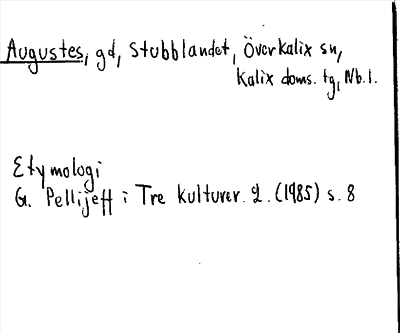 Augustes, gd, Stubblandet, Överkalix sn,
Kalix doms. tg, Nb. l.
Etymologi
G. Pellijeff i Tre kulturer. 2. (1985) s. 8